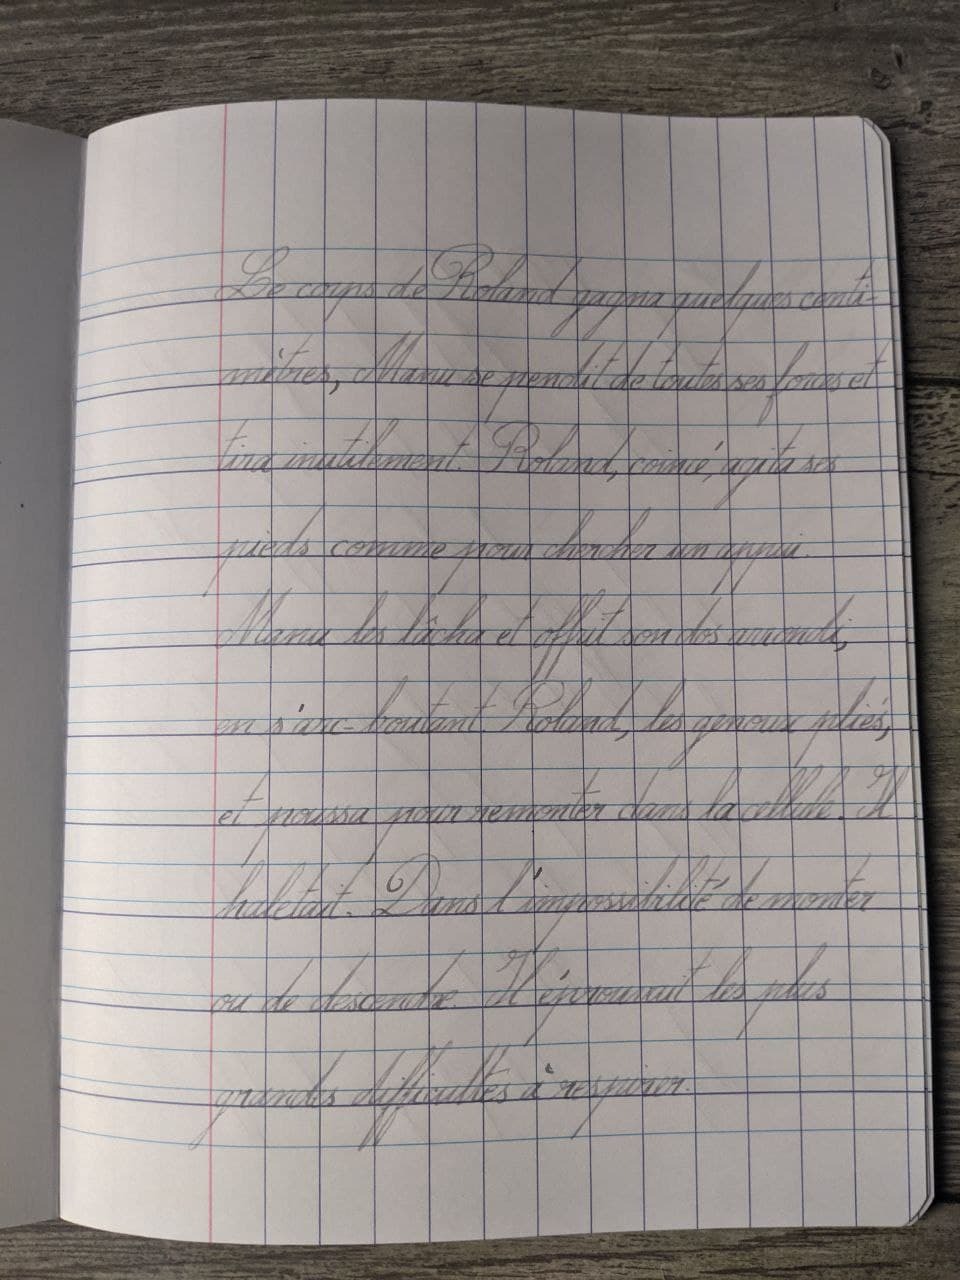 Le corps de Roland gagna quelques centi-
mètres, Manu se pendit de toutes ses forces et
tira inutilement. Roland, coincé, agita ses
pieds comme pour chercher un appui.
Manu les lâcha et offrit son dos arrondi,
en s'arc-boutant. Roland, les genoux pliés,
et poussa pour remonter dans la cellule. Il
haletait. Dans l'impossibilité de monter
ou de descendre. Il éprouvait les plus
grandes difficultés à respirer.